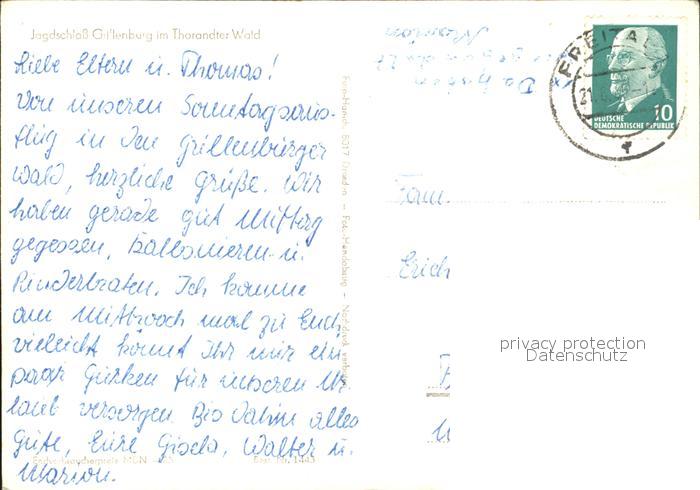 Jagdschloß Grillenburg im Tharandter Wald
Liebe Eltern u. Thomas!
Von unseren Sonntagsaus-
flug in den Grillenburger
Wald, herzliche Grüße. Wir
haben gerade gut Mittag
gegessen, Kassonieren u.
Rinderbraten. Ich komme
am Mittwoch mal zu Euch
vielleicht könnt Ihr mir ein
paar Gurken für unseren Ur
laub versorgen. Bis dahin alles
Gute, Eure Gisela, Walter u.
Marion.
Marion
FREITAL
DEUTSCHE
DEMOKRATISCHE REPUBLIK
10
Fam.
Erich
privacy protection
Datenschutz